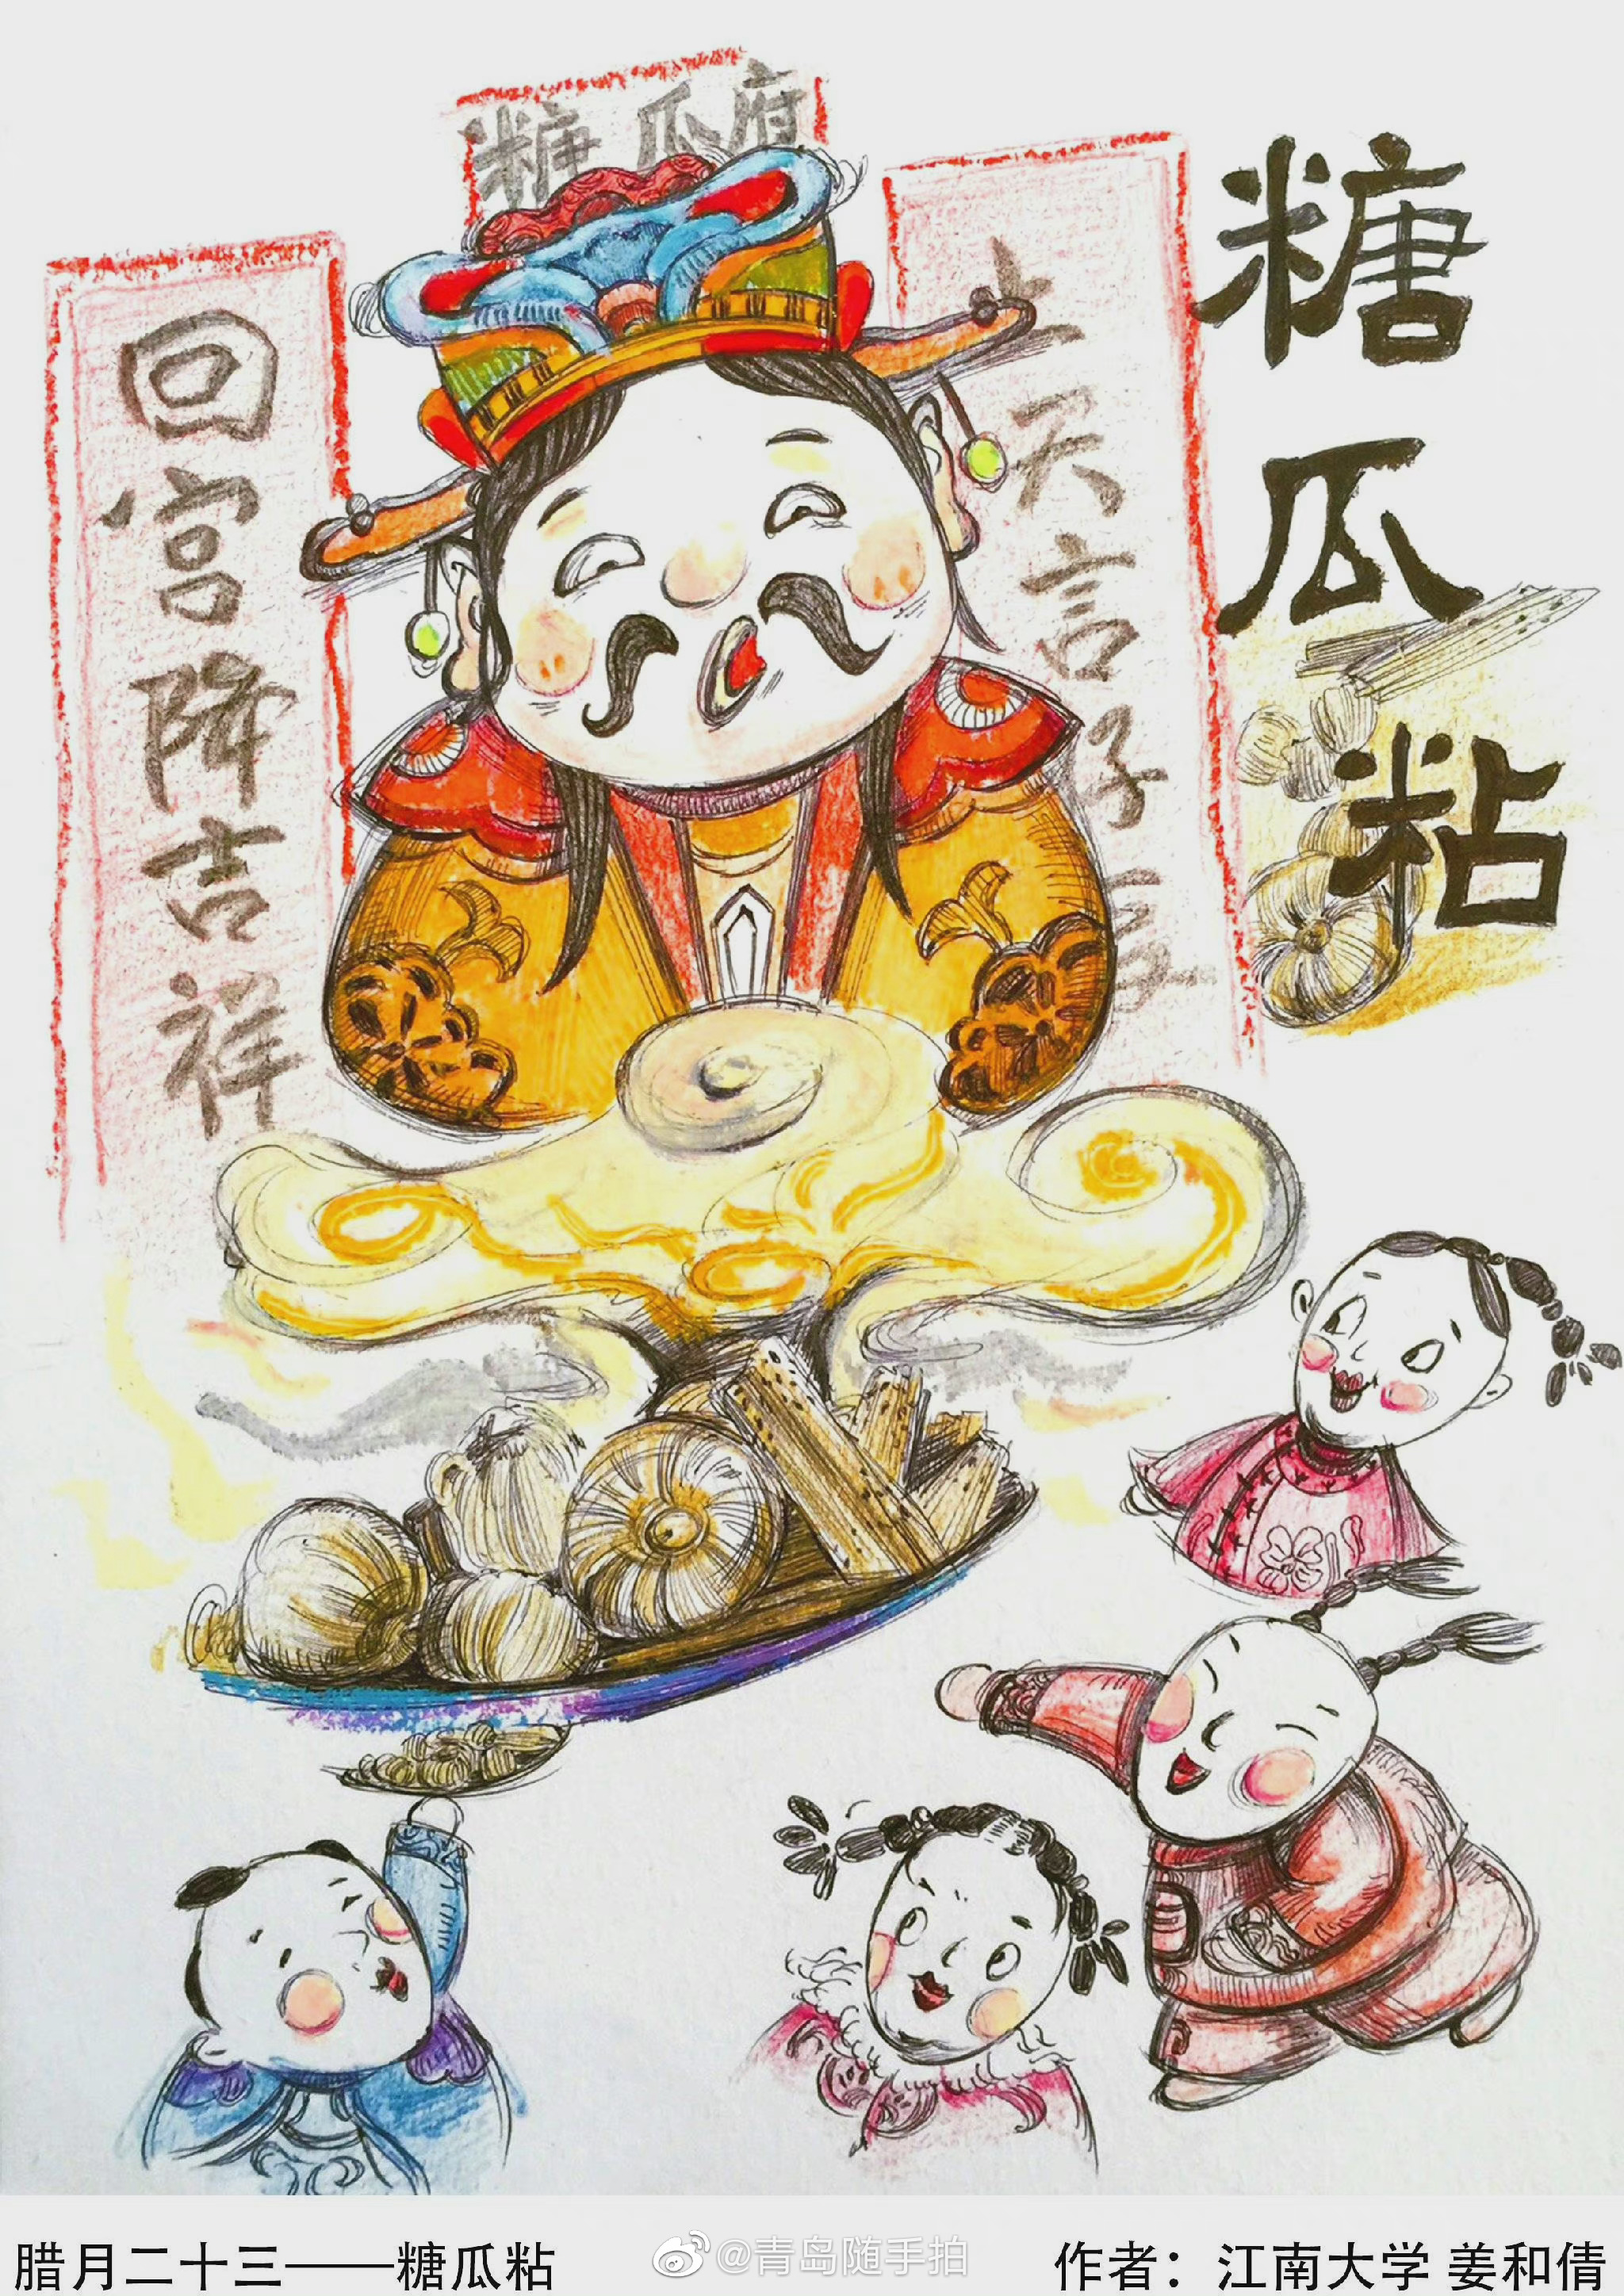 糖瓜府
上天言好事
回宫降吉祥
糖瓜粘
腊月二十三——糖瓜粘
@青岛随手拍
作者：江南大学 姜和倩